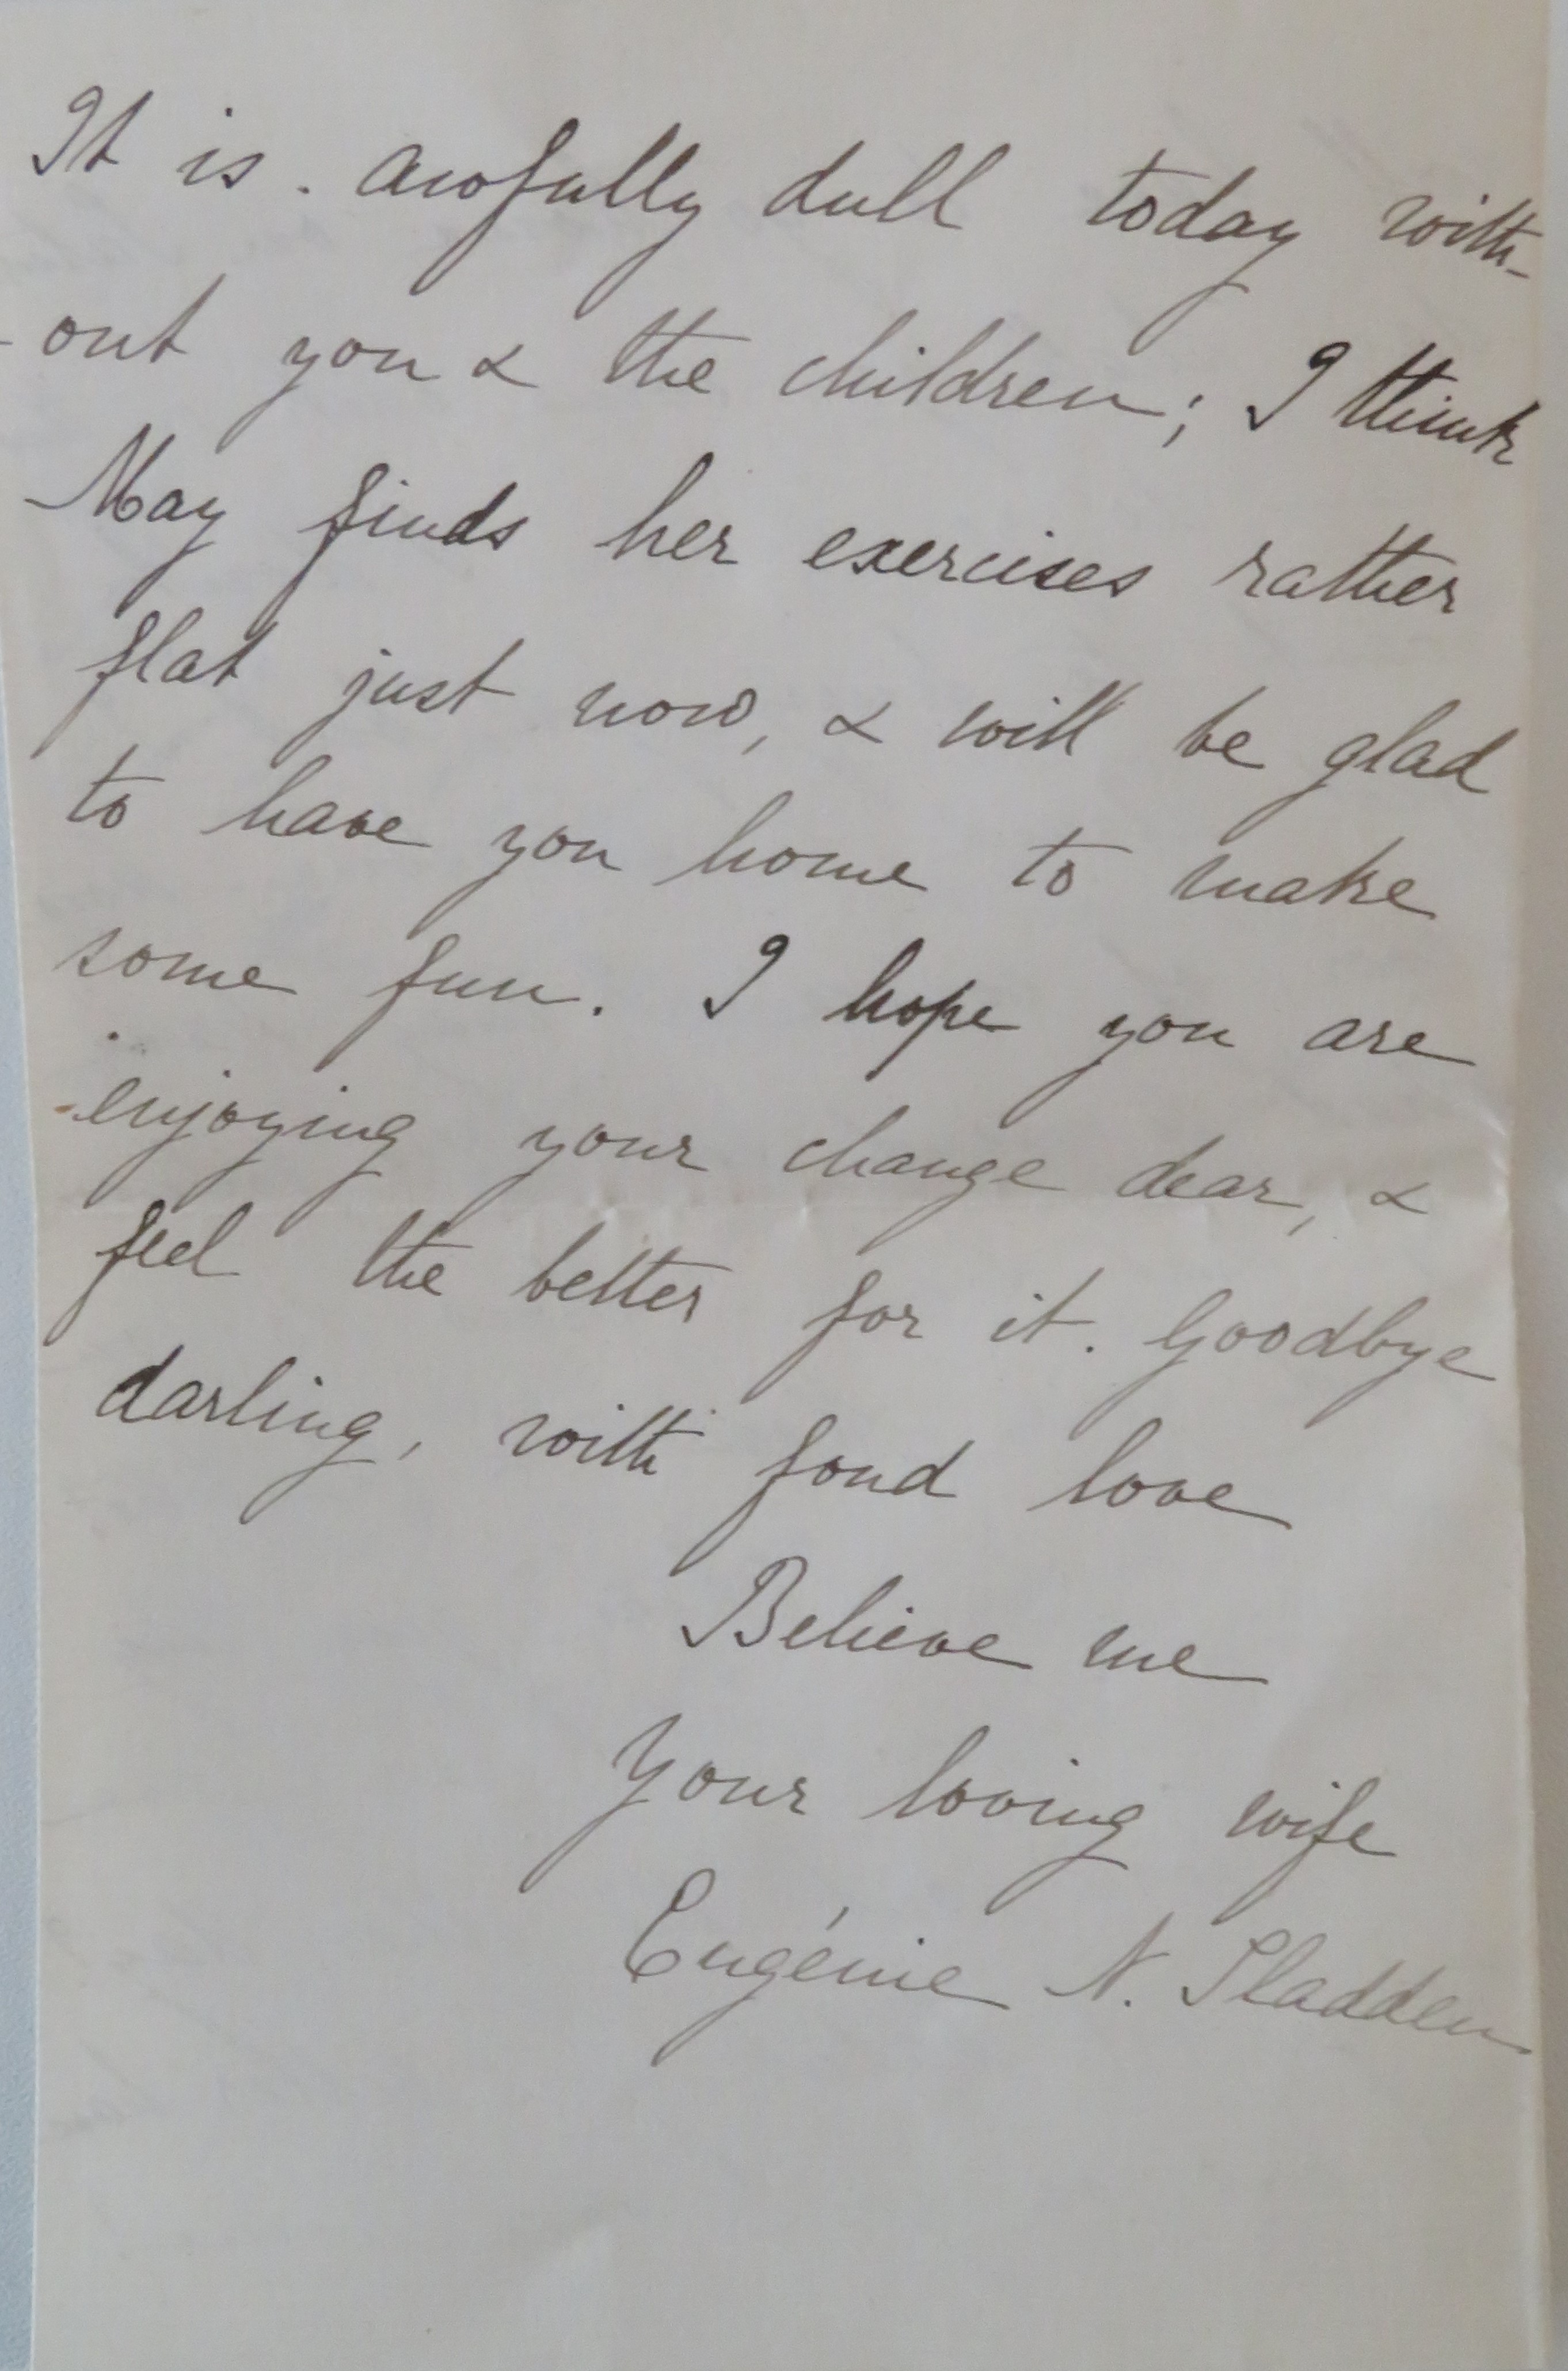 It is. awfully dull today with-
-out you & the children; I think
May finds her exercises rather
flat just now, & will be glad
to have you home to make
some fun. I hope you are
enjoying your change dear, &
feel the better for it. Goodbye
darling, with fond love
Believe me
Your loving wife
Eugénie N. Sladden